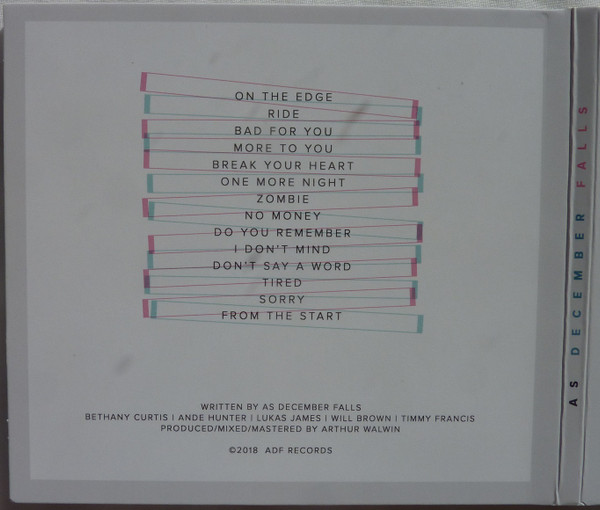 ON THE EDGE
RIDE
BAD FOR YOU
MORE TO YOU
BREAK YOUR HEART
ONE MORE NIGHT
ZOMBIE
NO MONEY
DO YOU REMEMBER
I DON'T MIND
DON'T SAY A WORD
TIRED
SORRY
FROM THE START
WRITTEN BY AS DECEMBER FALLS
BETHANY CURTIS | ANDE HUNTER | LUKAS JAMES | WILL BROWN | TIMMY FRANCIS
PRODUCED/MIXED/MASTERED BY ARTHUR WALWIN
©2018 ADF RECORDS
AS DECEMBER FALLS